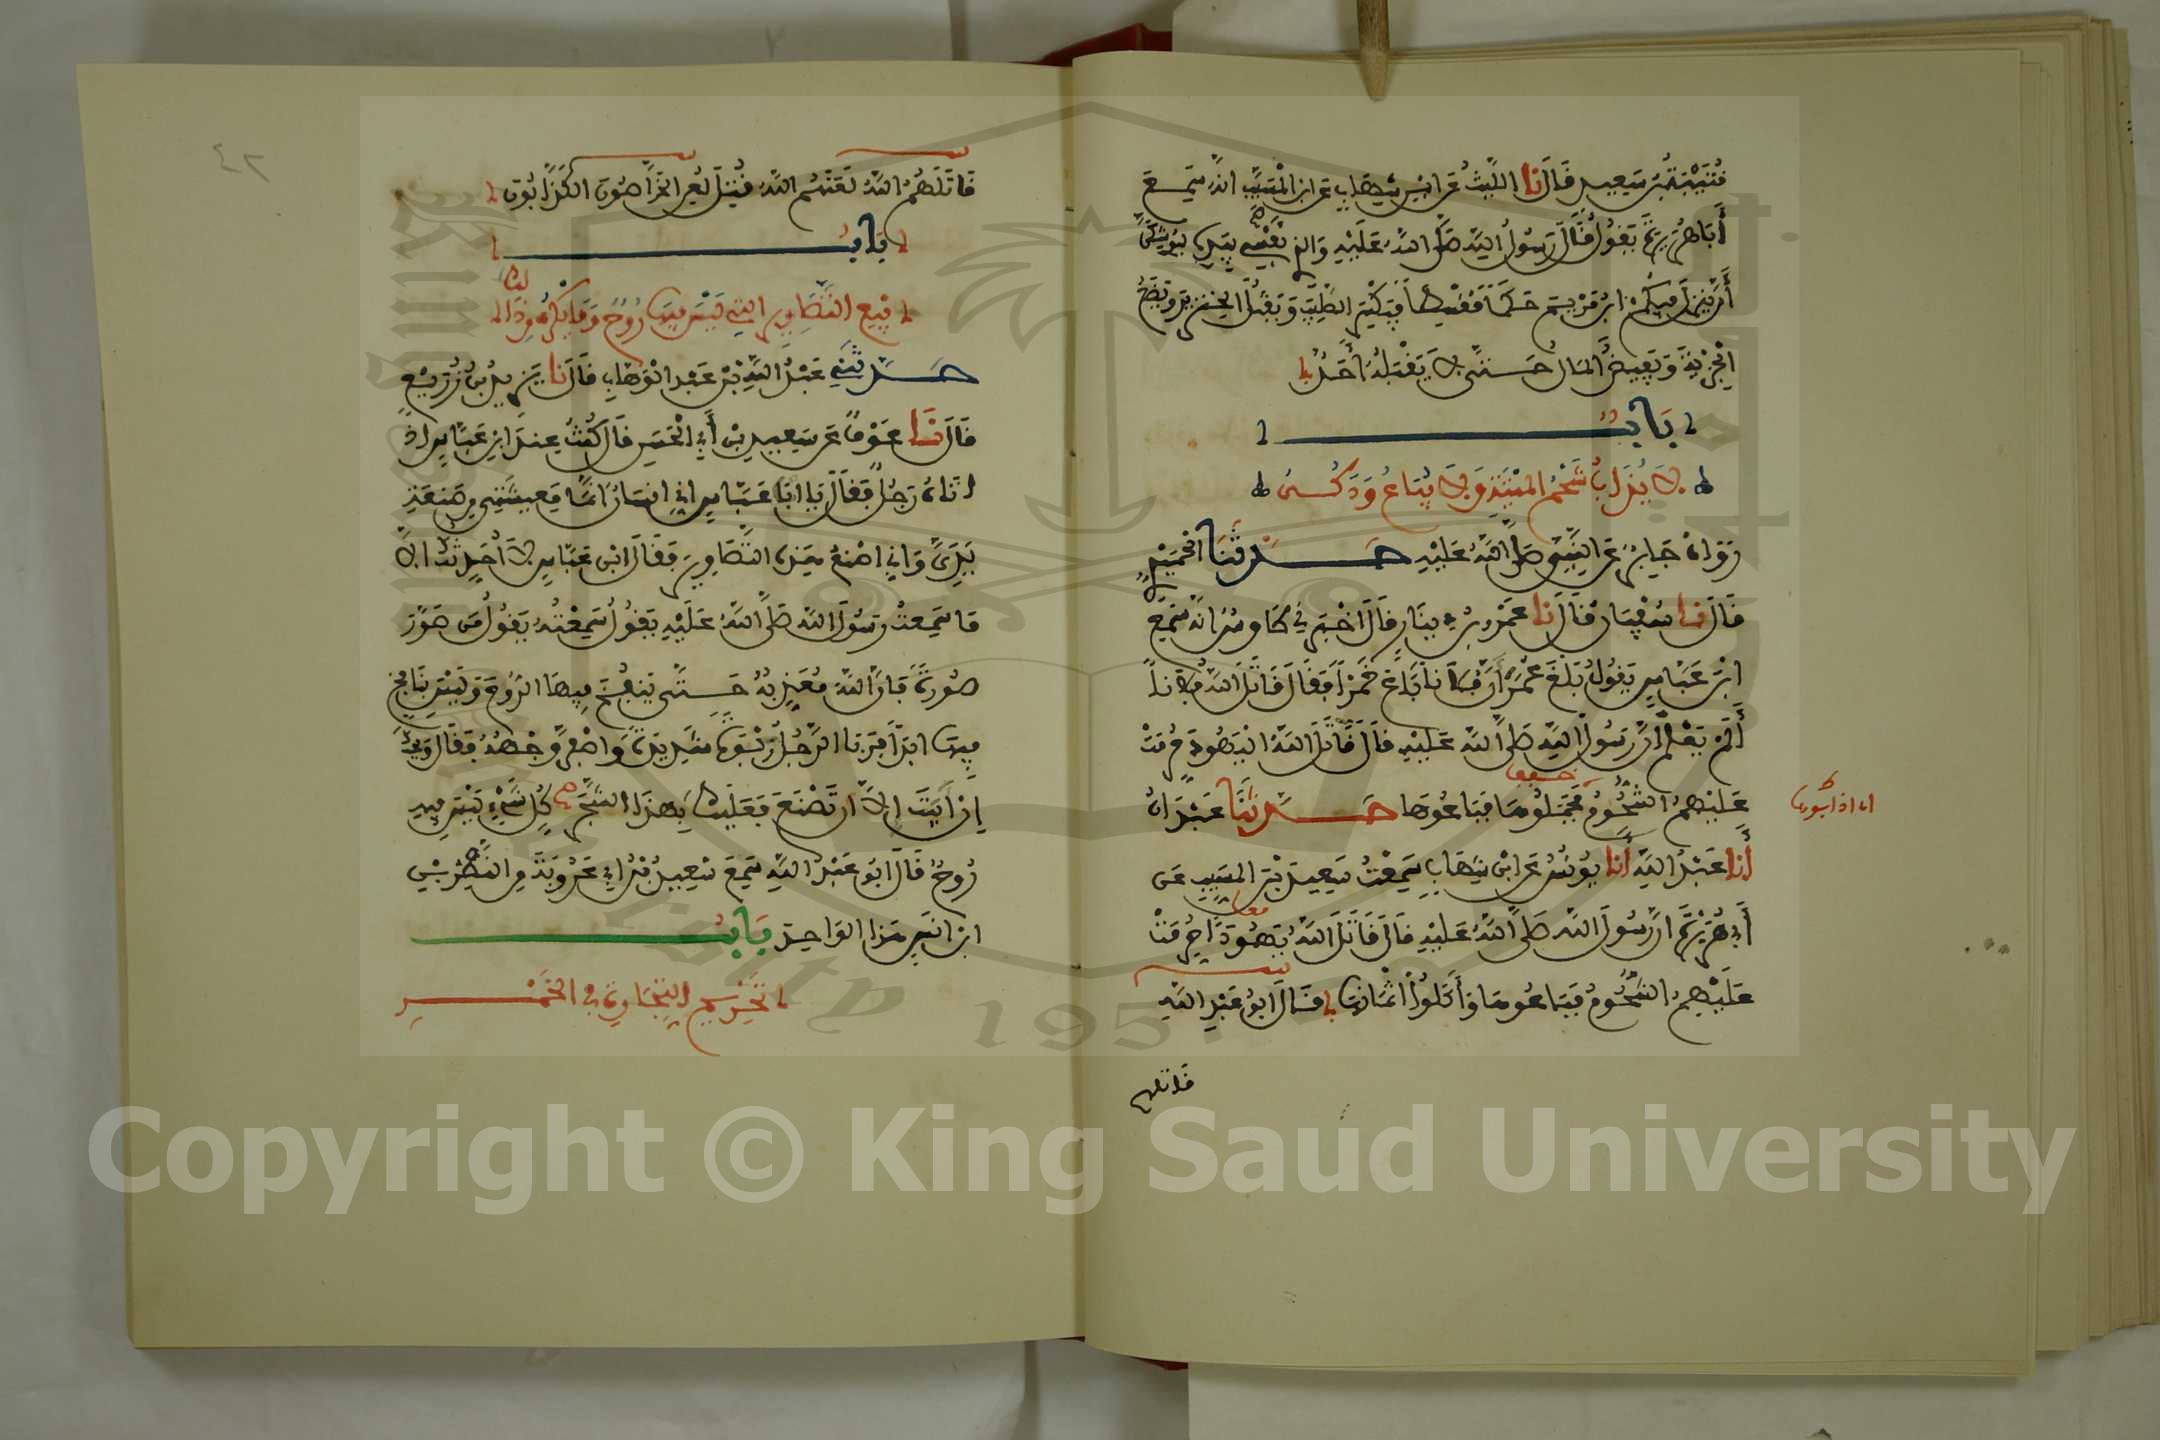 قُتَيْبَةُ بْنُ سَعِيدٍ قَالَ نا اللَّيْثُ عَنِ ابْنِ شِهَابٍ عَنِ ابْنِ الْمُسَيَّبِ أنَّهُ سَمِعَ
أَبَا هُرَيْرَةَ يَقُولُ قَالَ رَسُولُ اللَّهِ صَلَّى اللَّهُ عَلَيْهِ وَالذِي نَفْسِي بِيَدِهِ لَيُوشِكَنَّ
أَنْ يَنْزِلَ فِيكُمُ ابْنُ مَرْيَمَ حَكَمًا مُقْسِطًا فَيَكْسِرَ الصَّلِيبَ وَيَقْتُلَ الْخِنْزِيرَ وَيَضَعَ
الْجِزْيَةَ وَيَفِيضُ الْمَالُ حَتَّى لَا يَقْبَلَهُ أَحَدٌ
بَابٌ
لَا يُذَابُ شَحْمُ الْمَيْتَةِ وَلَا يُبَاعُ وَدَكُهُ
رَوَاهُ جَابِرٌ عَنِ النَّبِيِّ صَلَّى اللَّهُ عَلَيْهِ حَدَّثَنَا الْحُمَيْدِيُّ
قَالَ نا سُفْيَانُ قَالَ نا عَمْرُو بْنُ دِينَارٍ قَالَ أخْبَرَنِي طَاوُسٌ أنَّهُ سَمِعَ
ابْنَ عَبَّاسٍ يَقُولُ بَلَغَ عُمَرَ أَنَّ فُلَاناً بَاعَ خَمْرًا فَقَالَ قَاتَلَ اللَّهُ فُلَاناً
أَلَمْ يَعْلَمْ أَنَّ رَسُولَ اللَّهِ صَلَّى اللَّهُ عَلَيْهِ قَالَ قَاتَلَ اللَّهُ الْيَهُودَ حُرِّمَتْ
عَلَيْهِمُ الشُّحُومُ فَجَمَلُوهَا فَبَاعُوهَا حَدَّثَنَا عَبْدَانُ
أَنَا عَبْدُ اللَّهِ أَنَا يُونُسُ عَنِ ابْنِ شِهَابٍ سَمِعْتُ سَعِيدَ بْنَ الْمُسَيِّبِ عَن
أَبِي هُرَيْرَةَ أَنَّ رَسُولَ اللَّهِ صَلَّى اللَّهُ عَلَيْهِ قَالَ قَاتَلَ اللَّهُ يَهُودًا حُرِّمَتْ
عَلَيْهِمُ الشُّحُومُ فَبَاعُوهَا وَأَكَلُوا أَثْمَانَهَا قَالَ أَبُو عَبْدِ اللَّهِ
قاتلهم
٤٢
قَاتَلَهُمُ اللَّهُ لَعَنَهُم اللَّهُ قُتِلَ لُعِنَ الْخَرَّاصُونَ الكَذَّابُونَ
بَابُ
بَيْعِ التَّصَاوِيرِ التِي لَيْسَ فِيهَا رُوحٌ وَمَا يُكْرَهُ مِن ذَالِكَ
حَدَّثَنِي عَبْدُ اللَّهِ بْنُ عَبْدِ الْوَهَّابِ قَالَ نا يَزِيدُ بْنُ زُرَيْعٍ
قَالَ نَا عَوْفٌ عَن سَعِيدِ بْنِ أَبِي الْحَسَنِ قَالَ كُنْتُ عِندَ ابْنِ عَبَّاسٍ إِذْ
أتَاهُ رَجُلٌ فَقَالَ يَا ابَا عَبَّاسٍ إنِّي إنسَانٌ إنَّمَا مَعِيشَتِي مِن صَنْعَةِ
يَدِي وَإنِّي أصْنَعُ هَذِهِ التَّصَاوِيرَ فَقَالَ ابْنُ عَبَّاسٍ لَا أُحَدِّثُكَ إلَّا
مَا سَمِعْتُ رَسُولَ اللَّهِ صَلَّى اللَّهُ عَلَيْهِ يَقُولُ سَمِعْتُهُ يَقُولُ مَن صَوَّرَ
صُورَةً فَإنَّ اللَّهَ مُعَذِّبُهُ حَتَّى يَنفُخَ فِيهَا الرُّوحَ وَلَيْسَ بِنَافِخٍ
فِيهَا أبَدًا فَرَبَا الرَّجُلُ رَبْوَةً شَدِيدَةً وَاصْفَرَّ وَجْهُهُ فَقَالَ وَيْحَكَ
إِنْ أَبَيْتَ إِلَّا أنْ تَصْنَعَ فَعَلَيْكَ بِهَذَا الشَّجَرِ كُلِّ شَيْءٍ لَيْسَ فِيهِ
رُوحٌ قَالَ أَبُو عَبْدِ اللَّهِ سَمِعَ سَعِيدُ بْنُ أَبِي عَرُوبَةَ مِن النَّضْرِ بْنِ
أنَسٍ هَذَا الوَاحِدَ بَابُ
تَحْرِيمِ التِّجَارَةِ فِي الْخَمْرِ
Copyright © King Saud University